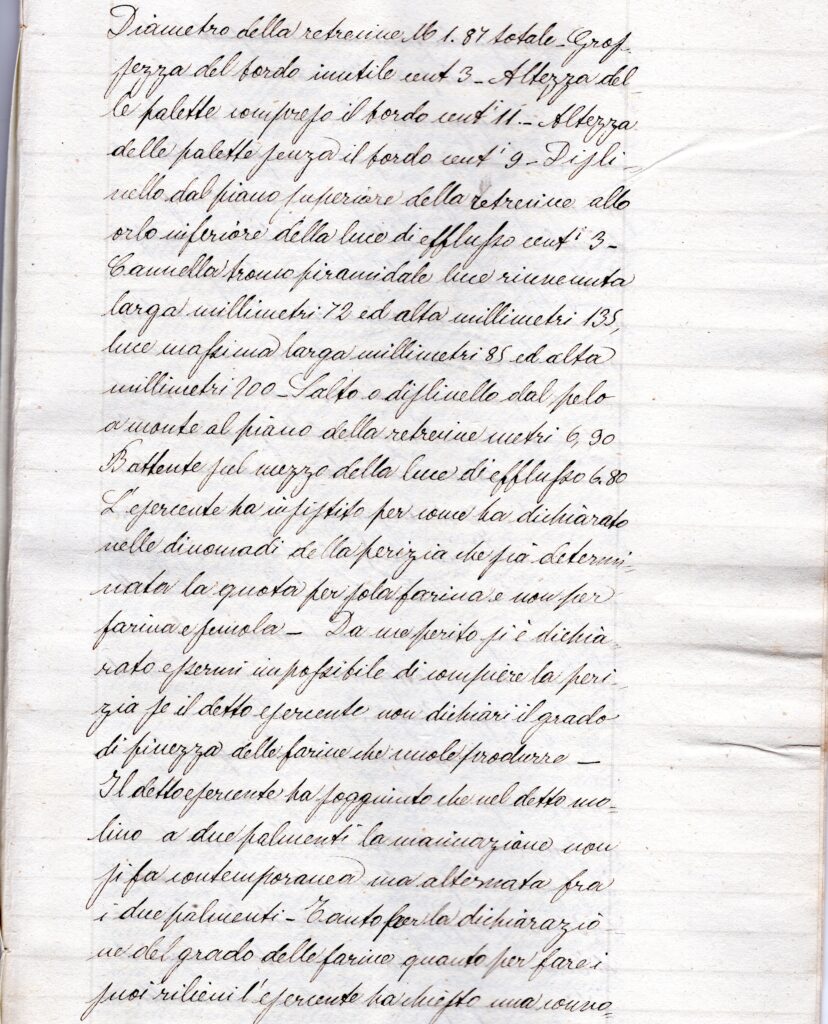 Diametro della retrecine M 1.87 totale _ Gros-
sezza del bordo inutile cent 3 _ Altezza del-
le palette compreso il bordo centⁱ 11. _ Altezza
delle palette senza il bordo centⁱ 9 _ Disli-
vello dal piano superiore della retrecine allo
orlo inferiore della luce di efflusso centⁱ 3 _
Cannella tronco piramidale luce rinvenuta
larga millimetri 72 ed alta millimetri 135,
luce massima larga millimetri 85 ed alta
millimetri 200 _ Salto o dislivello dal pelo
a monte al piano della retrecine metri 6,90
Battente sul mezzo della luce di efflusso 6.80
L'esercente ha insistito per come ha dichiarato
nelle della perizia che sia determi-
nata la quota per sola farina e non per
farina e semola _ Da me perito si è dichia-
rato essermi impossibile di compiere la peri-
zia se il detto esercente non dichiari il grado
di finezza delle farine che vuole produrre _
Il detto esercente ha soggiunto che nel detto mo-
lino a due palmenti la macinazione non
si fa contemporanea ma alternata fra
i due palmenti _ Tanto per la dichiarazio-
ne del grado delle farine quanto per fare i
suoi rilievi l'esercente ha chiesto una convo-